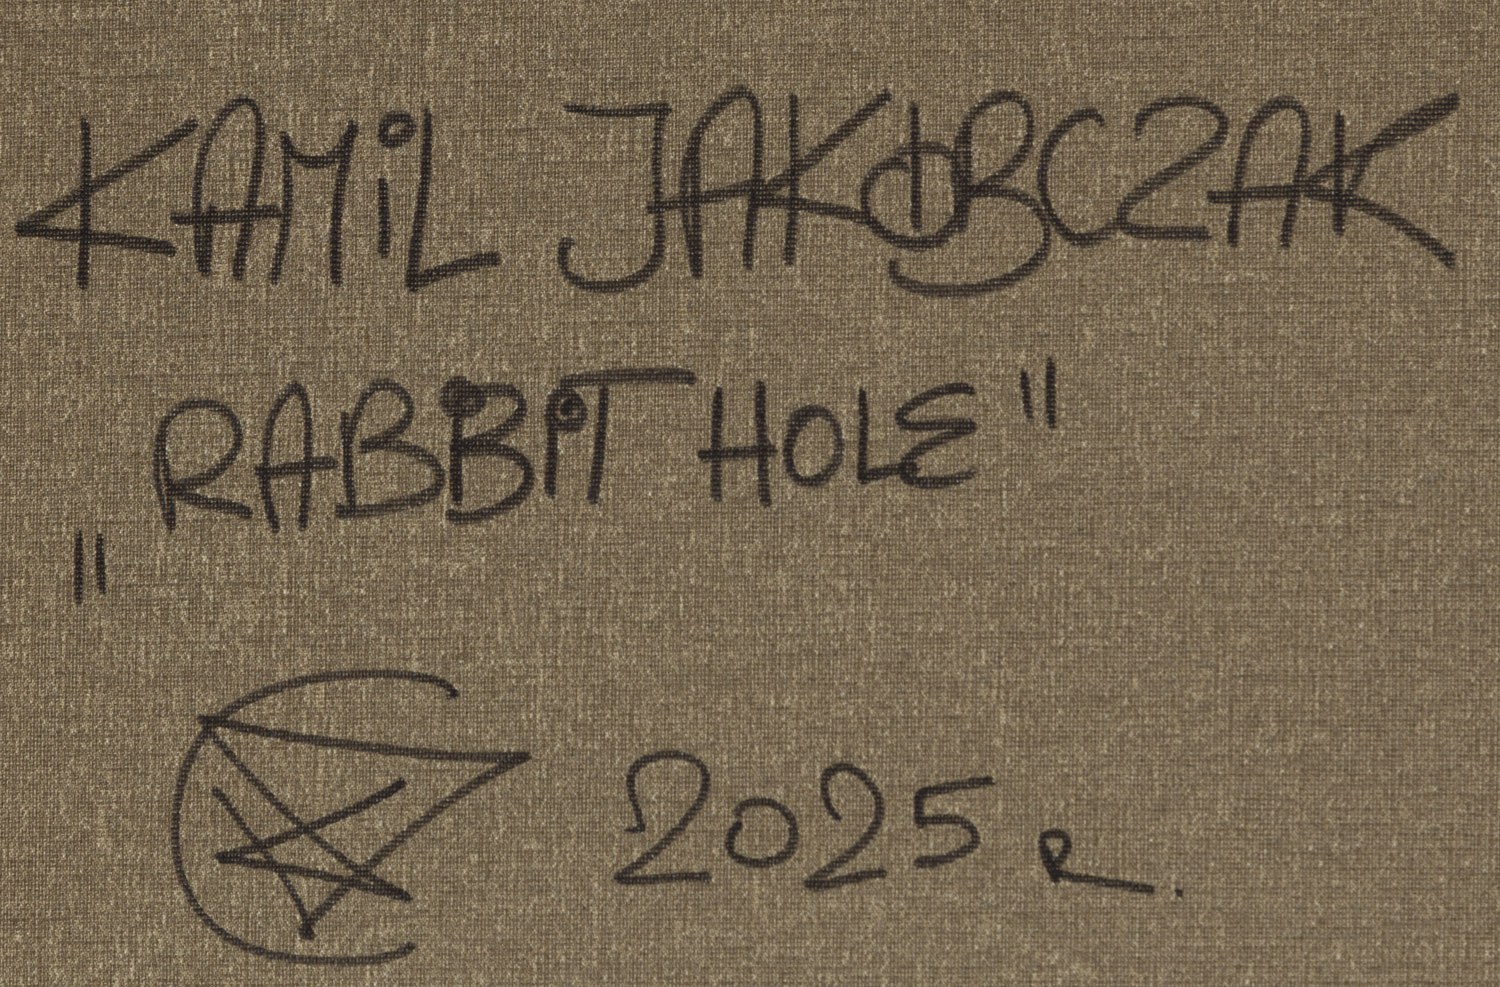 KAMiL JAKÓBCZAK
"RABBiT HOLE"
2025 R.